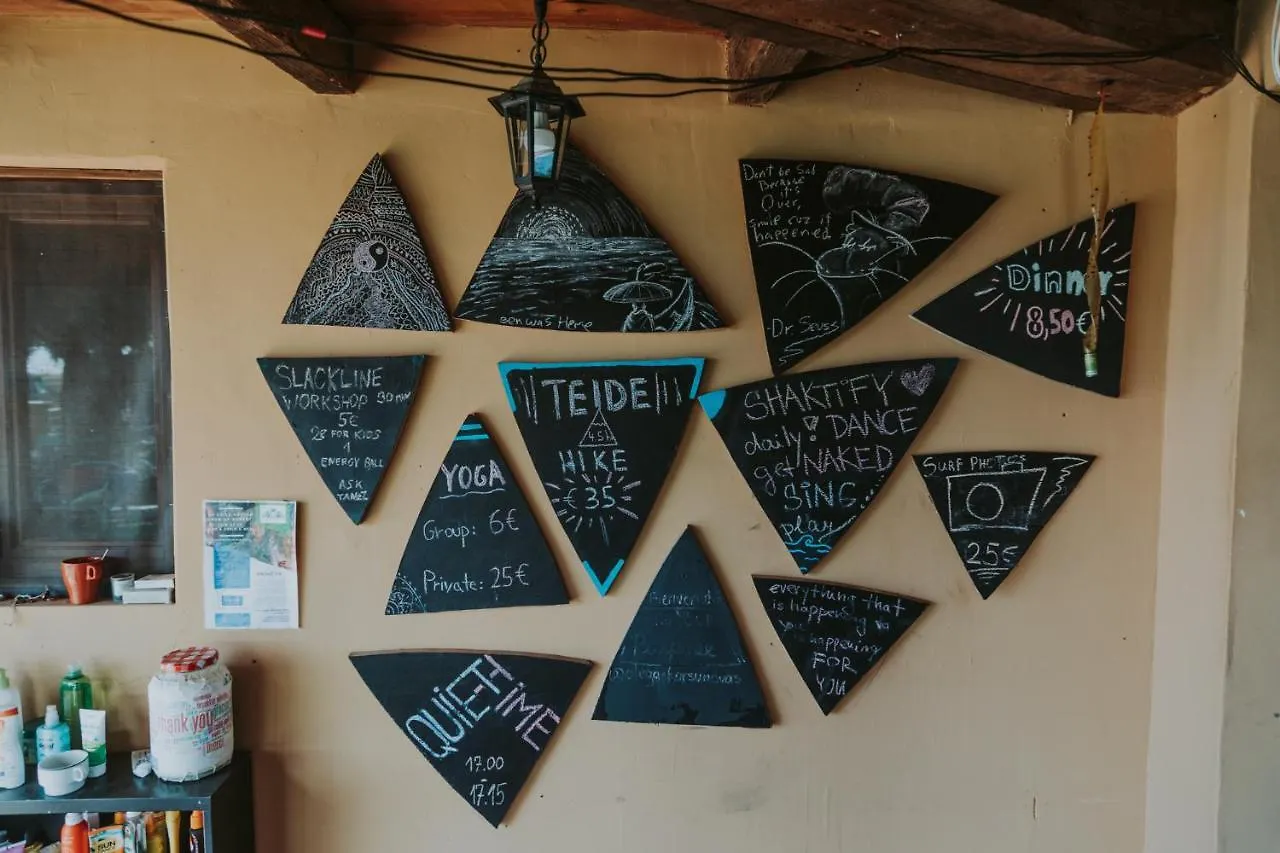 Don't be Sad
Because
it's
Over,
Smile cuz it
happened
-Dr. Seuss
Dinner
8,50€
SLACKLINE
WORKSHOP 90 min
5€
FOR KIDS
1
ENERGY BALL
ASK
YOGA
Group: 6€
Private: 25€
TEIDE
4.5h
HIKE
€35
SHAKTIFY
daily! DANCE
get NAKED
SING
play
SURF PHOTOS
25€
everything that
is happening
you happening
FOR
YOU
QUIET TIME
17.00
-
17.15
thank you
SUN